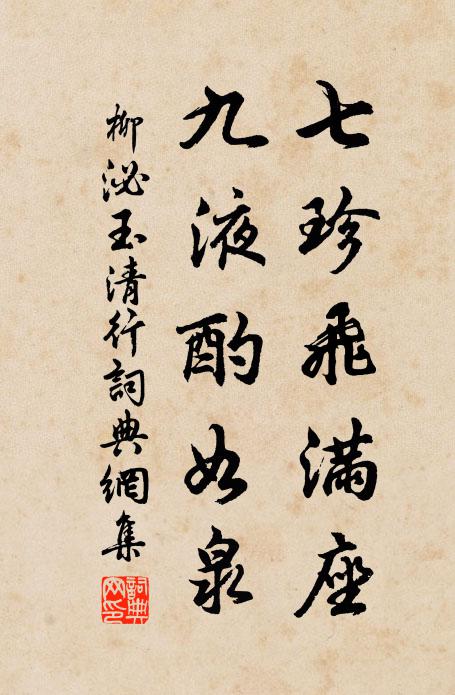 七珍飛滿座
九液酌如泉
柳泌玉清行詞典網集
詞典網印